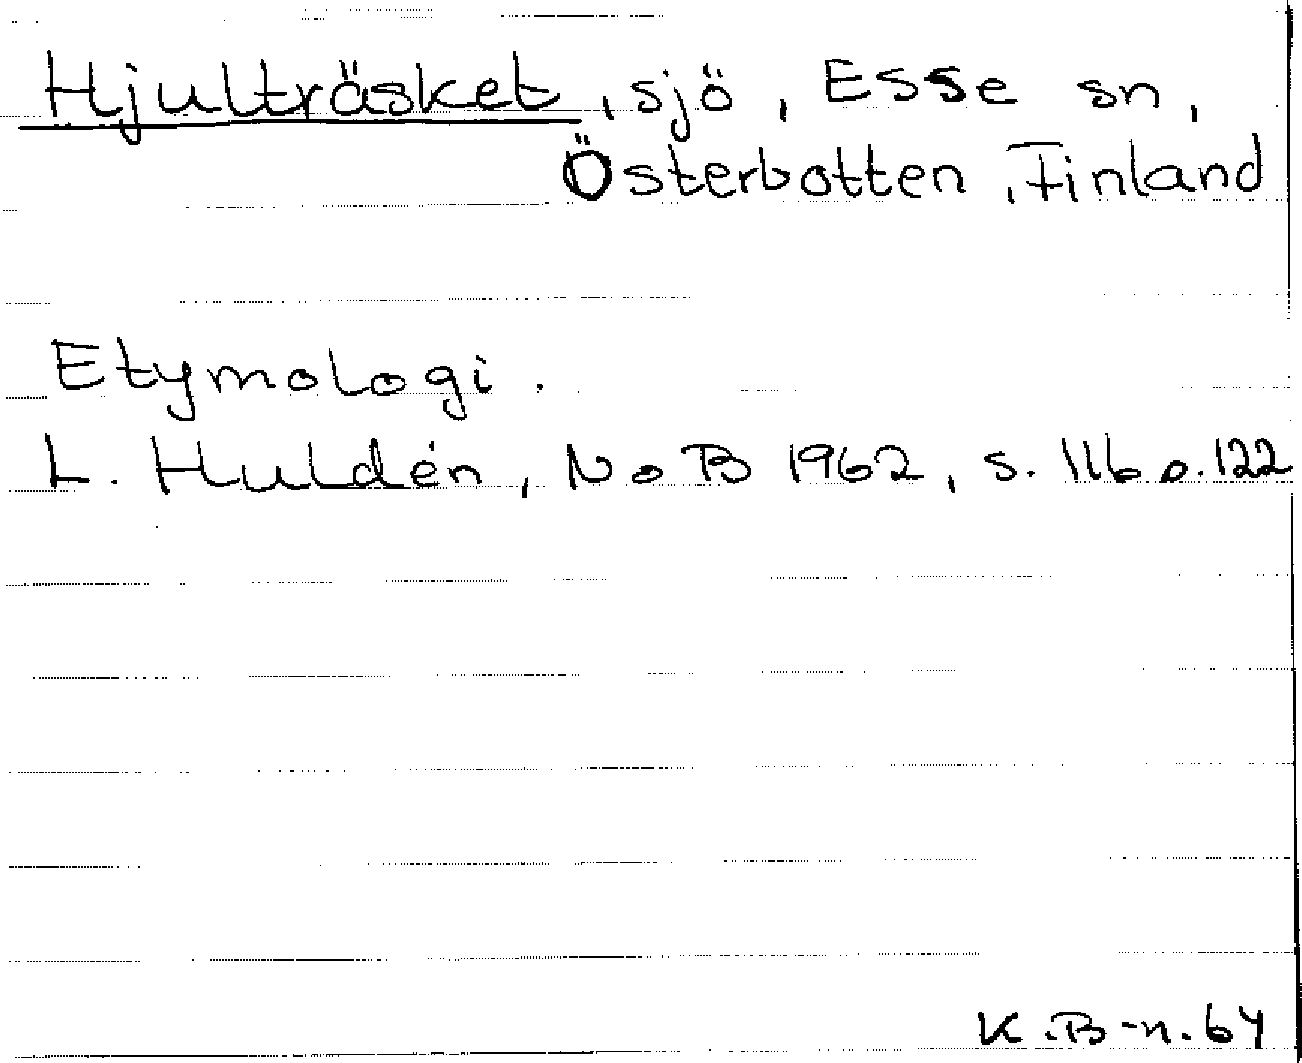 Hjulträsket, sjö, Esse sn,
Österbotten, Finland
Etymologi.
L. Huldén, NoB 1962, s. 116 o. 122
K.B-n. 64